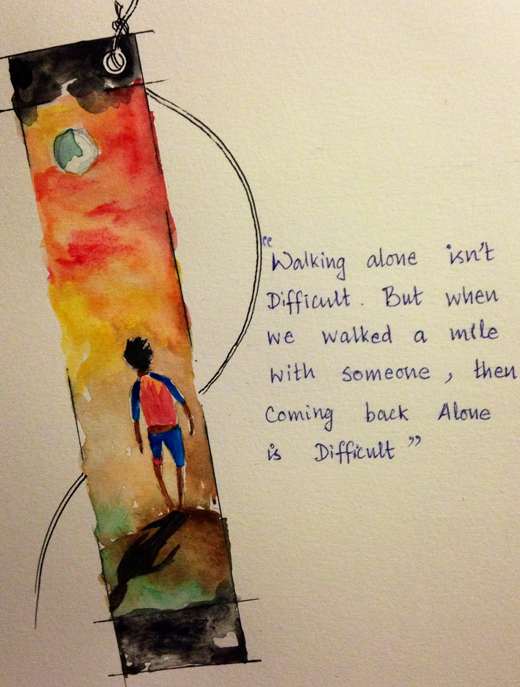 "Walking alone isn't
Difficult. But when
we walked a mile
with someone, then
Coming back Alone
is Difficult"